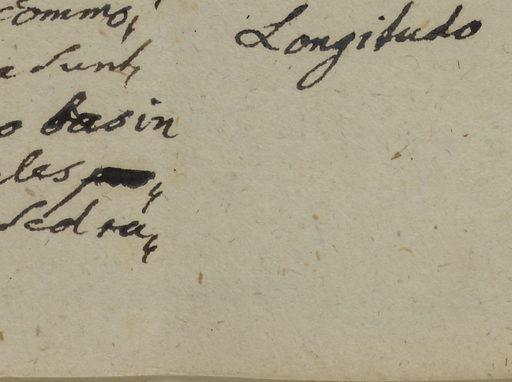 commo,
Longitudo
a sunt,
o basin
les
sed ra,,